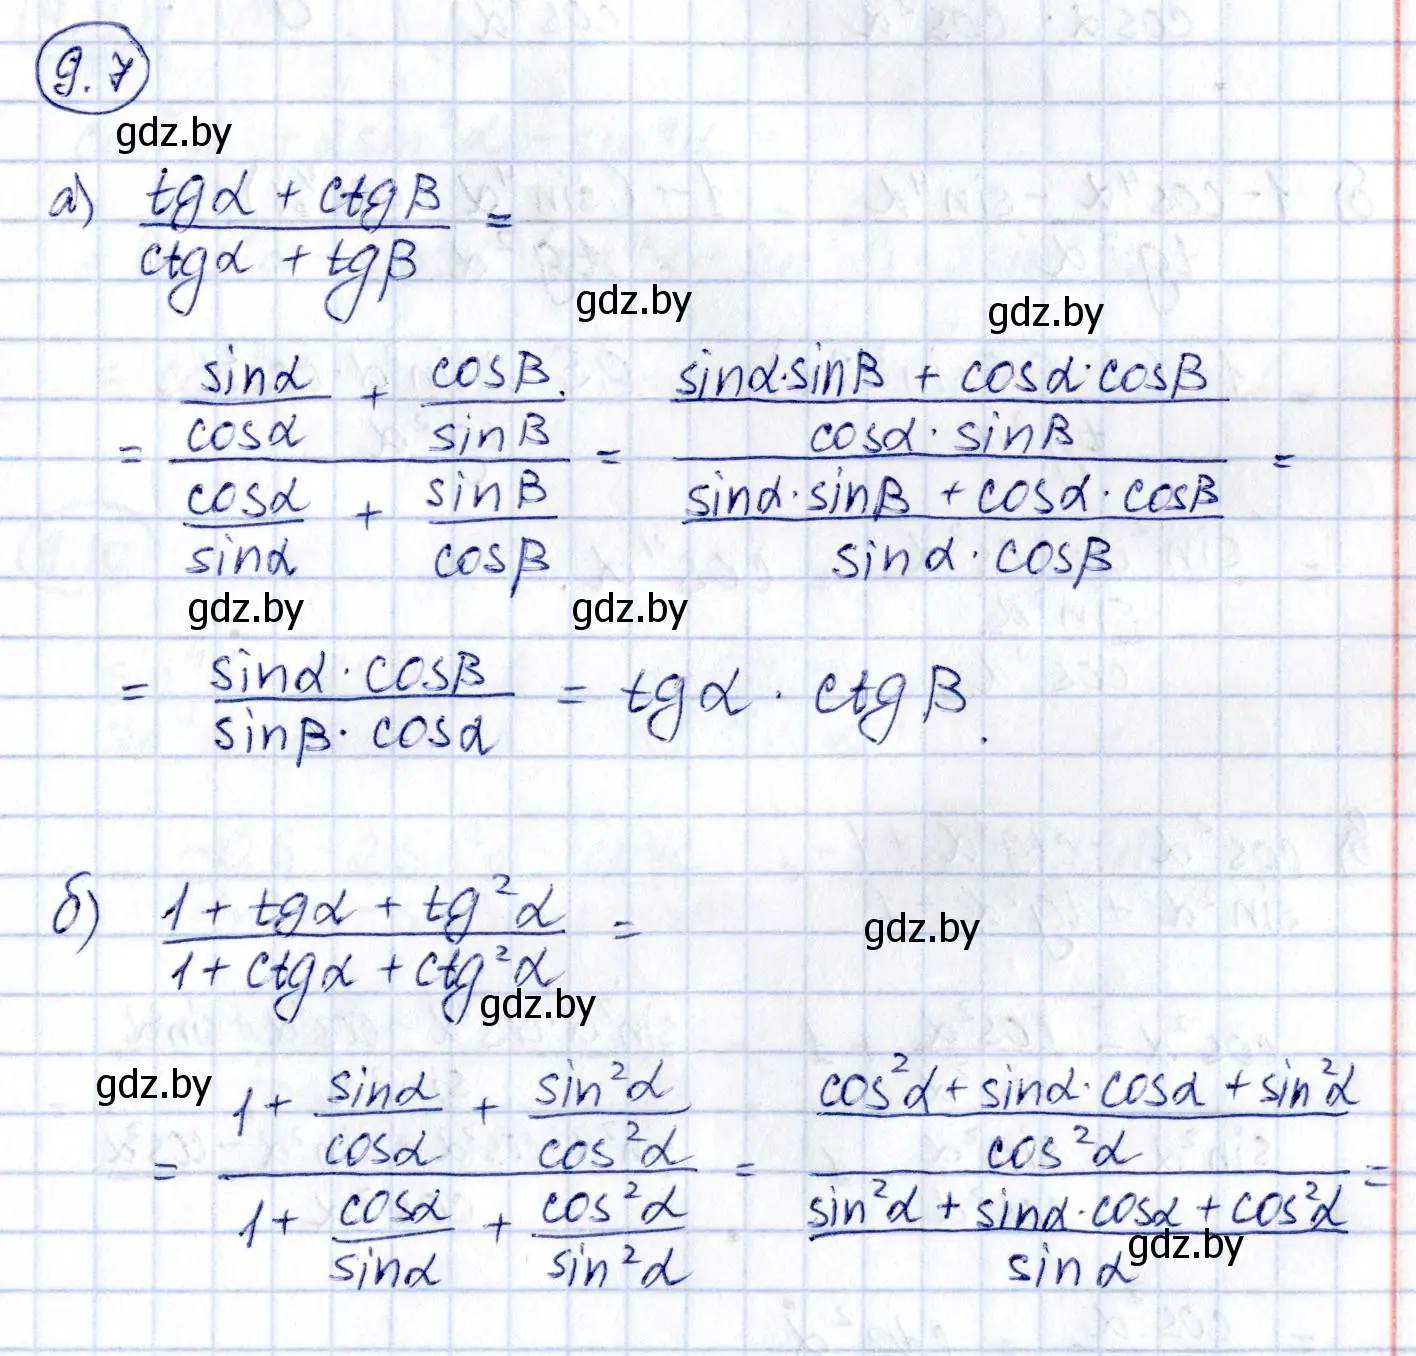 9.7
gdz.by
а) (tgα + ctgβ)/(ctgα + tgβ) =
gdz.by gdz.by
= (sinα/cosα + cosβ/sinβ)/(cosα/sinα + sinβ/cosβ) = ((sinα·sinβ + cosα·cosβ)/(cosα·sinβ))/((sinα·sinβ + cosα·cosβ)/(sinα·cosβ)) =
gdz.by gdz.by
= (sinα·cosβ)/(sinβ·cosα) = tgα · ctgβ.
б) (1 + tgα + tg²α)/(1 + ctgα + ctg²α) =
gdz.by
gdz.by
gdz.by
= (1 + sinα/cosα + sin²α/cos²α)/(1 + cosα/sinα + cos²α/sin²α) = ((cos²α + sinα·cosα + sin²α)/(cos²α))/((sin²α + sinα·cosα + cos²α)/(sinα)) =
gdz.by